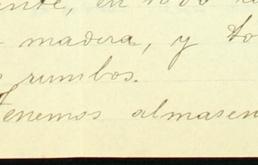 en
madera, y
rumbos.
Tenemos almasen